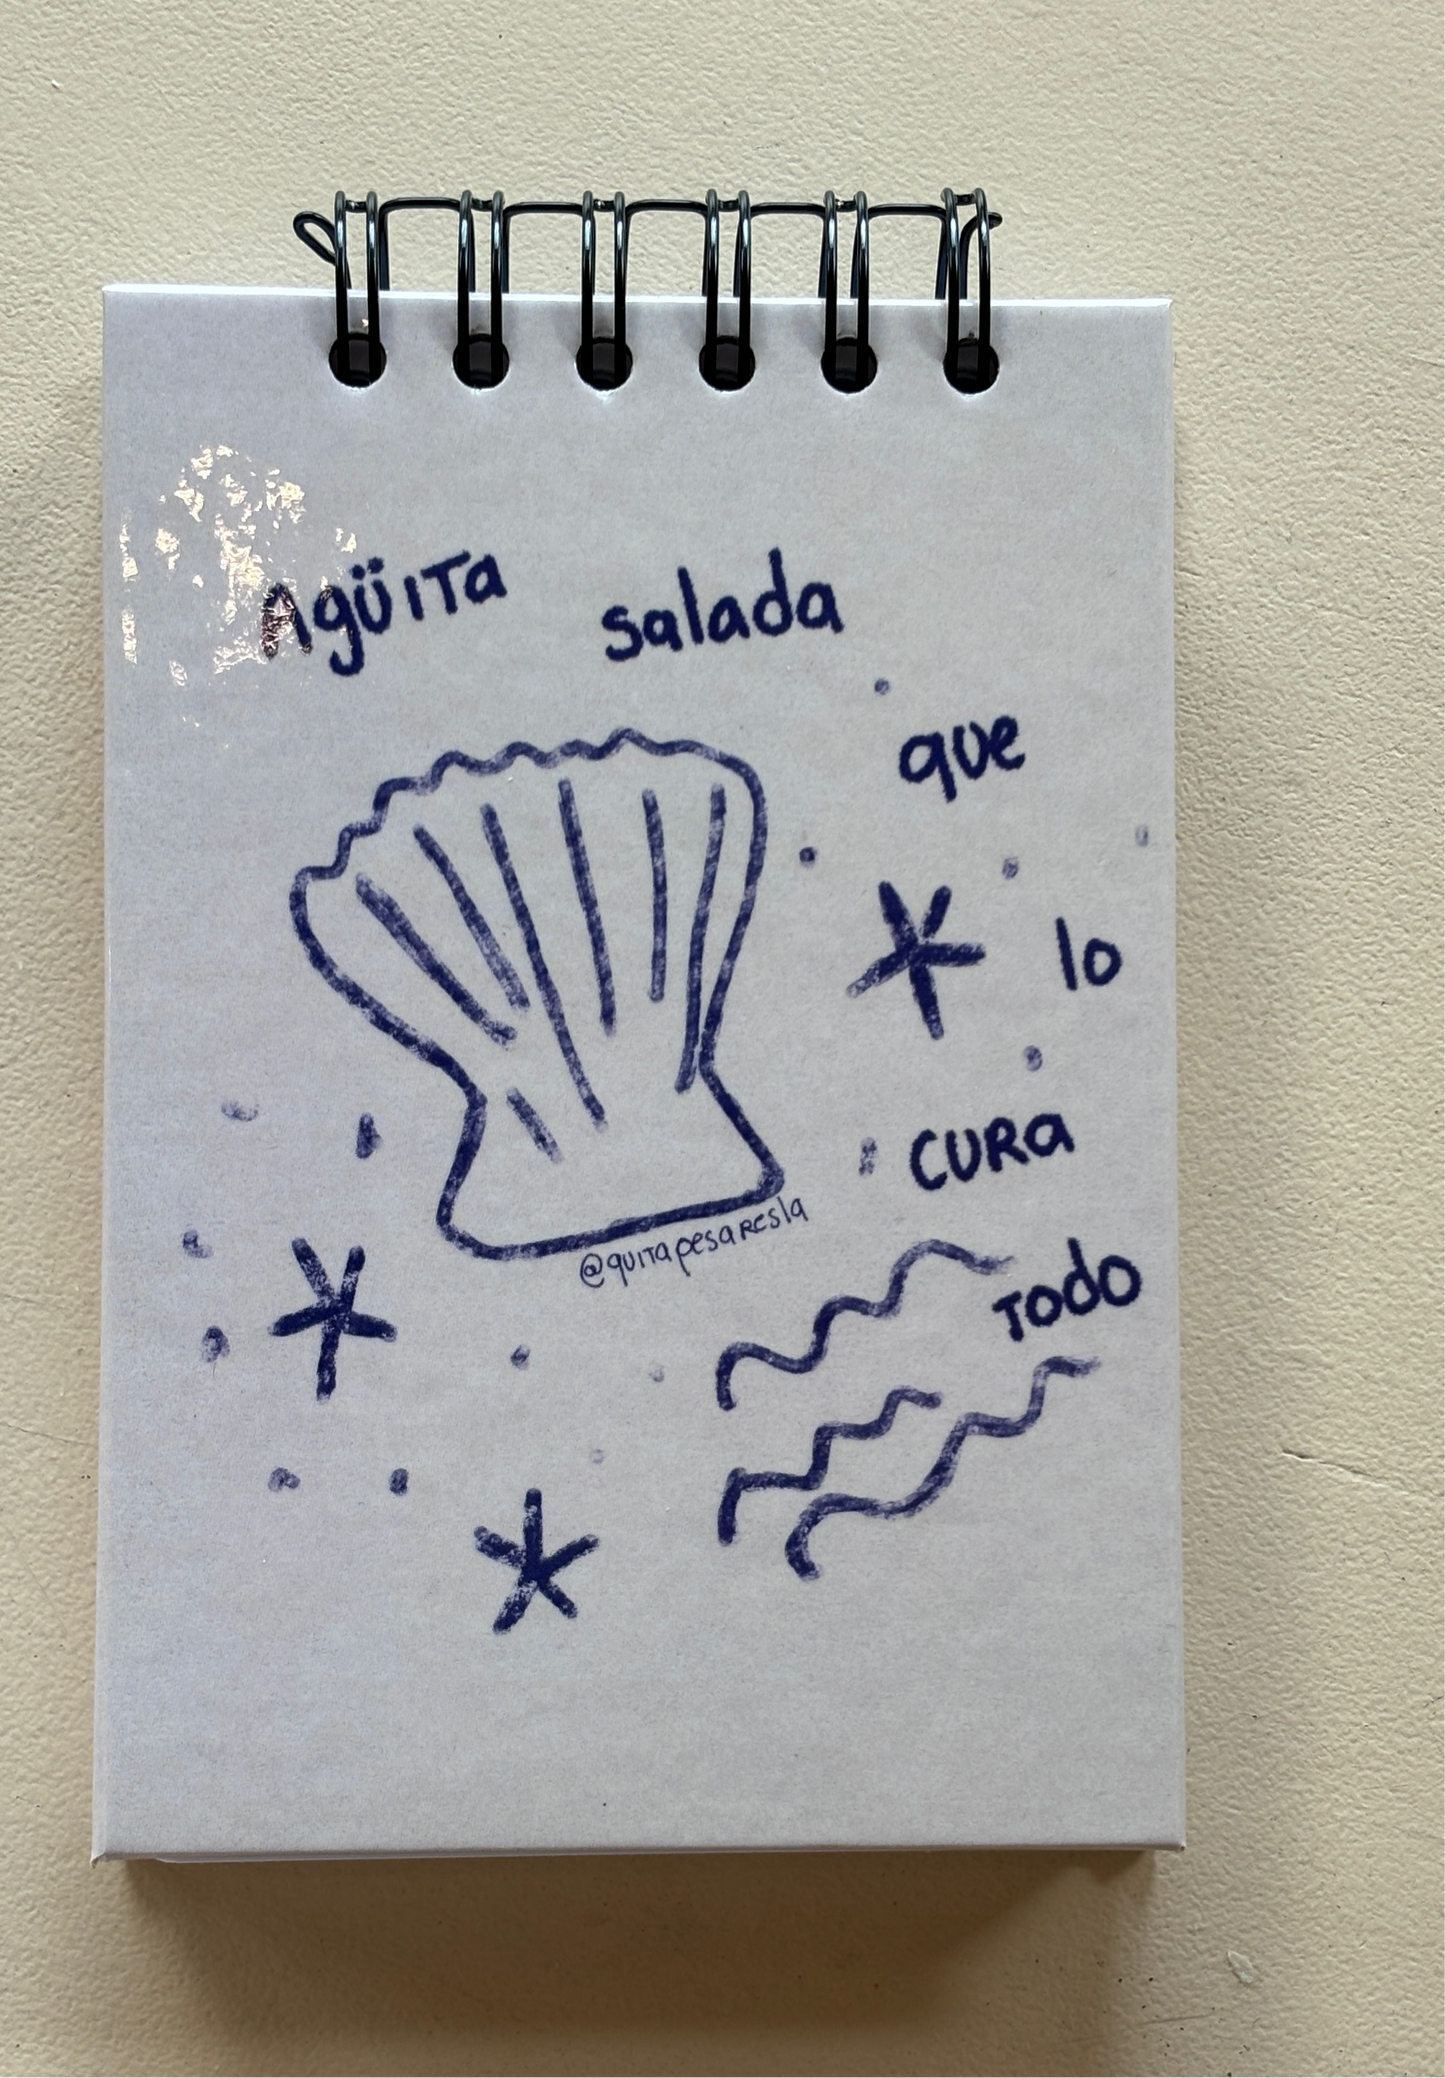 Agüita salada
que
lo
cura
todo
@quitapesaresla